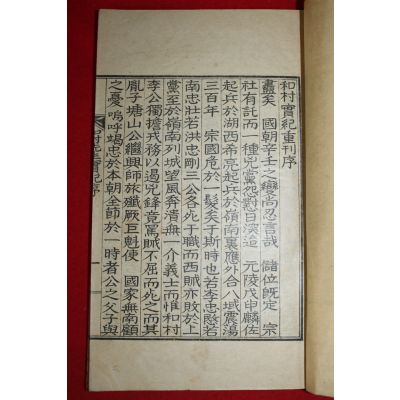 和村實紀重刊序
蠱矣　國朝辛壬之變尚忍言哉　儲位旣定　宗
社有託而一種兇黨怨懟日深造　元陵戊申麟佐
起兵於湖西希亮起兵於嶺南裏應外合八域震蕩
三百年　宗國危於一髮矣于斯時也若李忠愍若
南忠壯若洪忠剛三公各死于職而西賊亦敗於上
黨至於嶺南列城望風奔潰無一介義士而惟和村
李公獨擔戎務以遏兇鋒竟罵賊不屈而死之而其
胤子塘山公繼興師旅殲厥巨魁使　國家無南顧
之憂嗚呼竭忠於本朝全節於一時者公之父子與